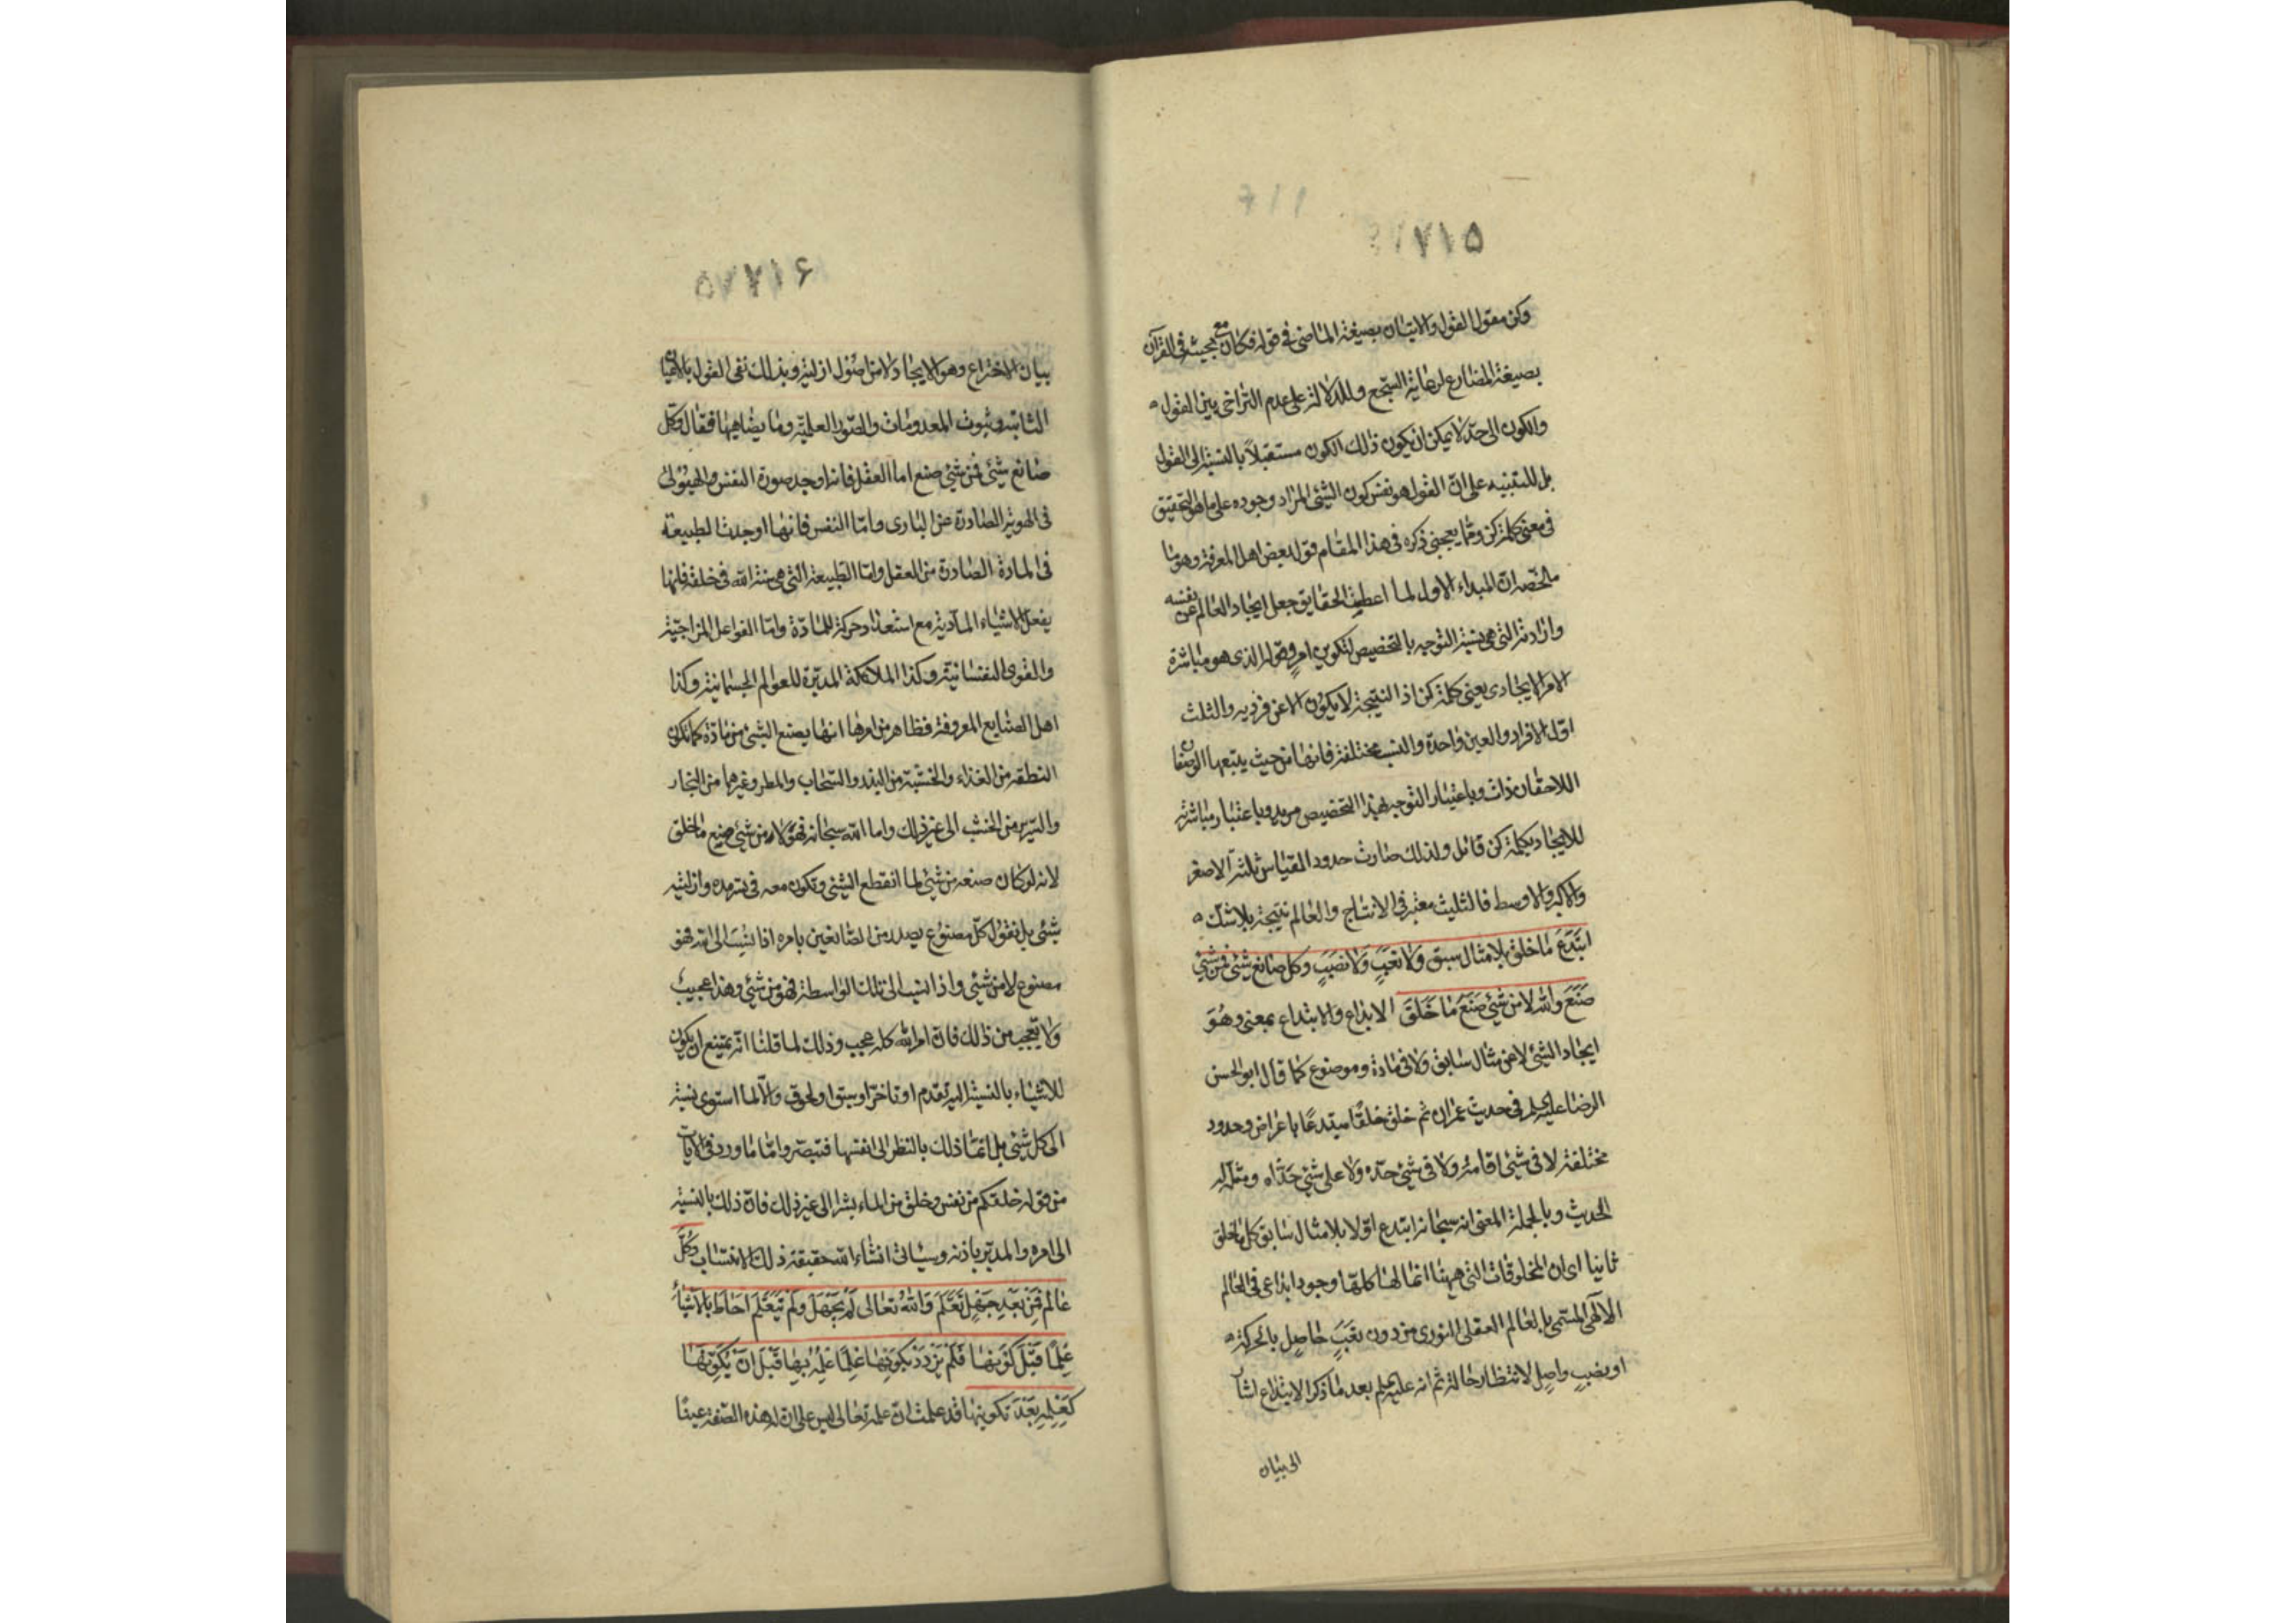 ۷۱۵
وكن مقول القول والاتيان بصيغة الماضى فى قوله فكان مع مجيئه فى القرآن
بصيغة المضارع لرعاية السجع وللدلالة على عدم التراخى بين القول
والكون الى حد لا يمكن ان يكون ذلك الكون مستقبلاً بالنسبة الى القول
بل للتنبيه على انّ القول هو نفس كون الشئ المراد وجوده على ما هو التحقيق
فى معنى كلمة كن ومما يعجبنى ذكره فى هذا المقام قول بعض اهل المعرفة وهو ما
ملخّصه ان المبداء الاول لما اعطيف الحقايق جعل ايجاد العالم عن نفسه
وارادته التى هى نسبة التوجه بالتخصيص لتكوين امرٍ وقوله الذى هو مباشرة
الامر الايجادى يعنى كلمة كن اذ النتيجة لا يكون الا عن فرديه والثلث
اول الافراد والعين واحدة والنسب مختلفة فانها من حيث يتبعها الوصفان
اللاحقان ذات وباعتبار التوجه بهذا التخصيص مريد وباعتبار مباشرته
للايجاد بكلمة كن قائل ولذلك صارت حدود القياس ثلثة الاصغر
والاكبر والاوسط فالتثليث معتبر فى الانتاج والعالم نتيجة بلا شك
ابْتَدَعَ مَا خلق بلا مثال سبق وَلا تعَبٍ وَلا نصَبٍ وكل صانع شئ فمن شئ
صَنَعَ والله لا من شئ صَنَعَ مَا خَلَقَ الابداع والابتداع بمعنى وهُوَ
ايجاد الشئ لا عن مثال سابق ولا فى مادة وموضوع كما قال ابوالحسن
الرضا عليه السلم فى حديث عمران ثم خلق خلقًا مبتدعًا باعراض وحدود
مختلفة لا فى شئ اقامه ولا فى شئ حدّه ولا على شئ حذاه ومثّله له
الحديث وبالجملة المعنى انه سبحانه ابتدع اولا بلا مثال سابق كل ما خلق
ثانيا اى ان المخلوقات التى هيهنا انما لها كلها وجود ابداعى فى العالم
الالهى المسمى بالعالم العقلى النورى من دون تعَبٍ حاصِل بالحركة
او نصبٍ واصلٍ لانتظار حالة ثم انه عليه السلم بعد ما ذكر الابتداع اشار
الى بيان
۷۱۶
بيان الاختراع وهو الايجاد لا من اصُول ازلية وبذلك نفى القول بالاعيان
الثابتة وثبوت المعدومات والصور العلمية وما يضاهيها فقال وكل
صانع شئ فمن شئ صنع اما العقل فانه اوجد صورة النفس والهيولى
فى الهوية الصادرة عن البارى واما النفس فانها اوجدت الطبيعة
فى المادة الصادرة من العقل واما الطبيعة التى هى سنة الله فى خلقه فانها
يفعل الاشياء المادية مع استعداد وحركة للمادّة وامّا الفواعل المزاجيّة
والقوى النفسانية وكذا الملائكة المدبّرة للعوالم الجسمانية وكذا
اهل الصنايع المعروفة فظاهر من امرها انها يصنع الشئ من مادّة كما تكون
النطفة من الغذاء والخشبة من البذر والسّحاب والمطر وغيرهما من البخار
والسّرير من الخشب الى غير ذلك واما الله سبحانه فهو لا من شئ صنع ما خلق
لانه لو كان صنعه من شئ لما انقطع الشئ وتكون معه فى سرمده وازليته
شئ بل نقول كل مصنوع يصدر من الصانعين بامره اذا نسب الى الله فهو
مصنوع لا من شئ واذا نسب الى تلك الواسطة فهو من شئ وهذا عجيب
ولا تعجب من ذلك فان امر الله كله عجب وذلك لما قلنا انه يمتنع ان يكون
للاشياء بالنسبة اليه تقدم او تاخر او سبق او لحوق والا لما استوى نسبته
الى كل شئ بل انما ذلك بالنظر الى انفسها فتبصر وامّا ما ورد فى الايات
من قوله خلقكم من نفس وخلق من الماء بشرا الى غير ذلك فان ذلك بالنسبة
الى امره والمدبّر باذنه وسياتى انشاء الله حقيقة ذلك الانتساب وَكُلّ
عَالم فَمِنْ بَعْدِ جَهْلٍ تَعَلَّمَ وَاللهُ تعالى لَمْ يَجْهَلْ وَلَمْ يَتَعَلَّمْ احَاطَ بالاشياءِ
عِلْمًا قَبْلَ كَوْنِهَا فَلَمْ يَزْدَدْ بِكَوْنِهَا عِلْمًا عِلْمُهُ بِهَا قَبْلَ انْ يُكَوِّنَهَا
كَعِلْمِهِ بَعْدَ تكوينِهَا قد علمت ان علمه تعالى ليس على ان له هذه الصّفة عينًا